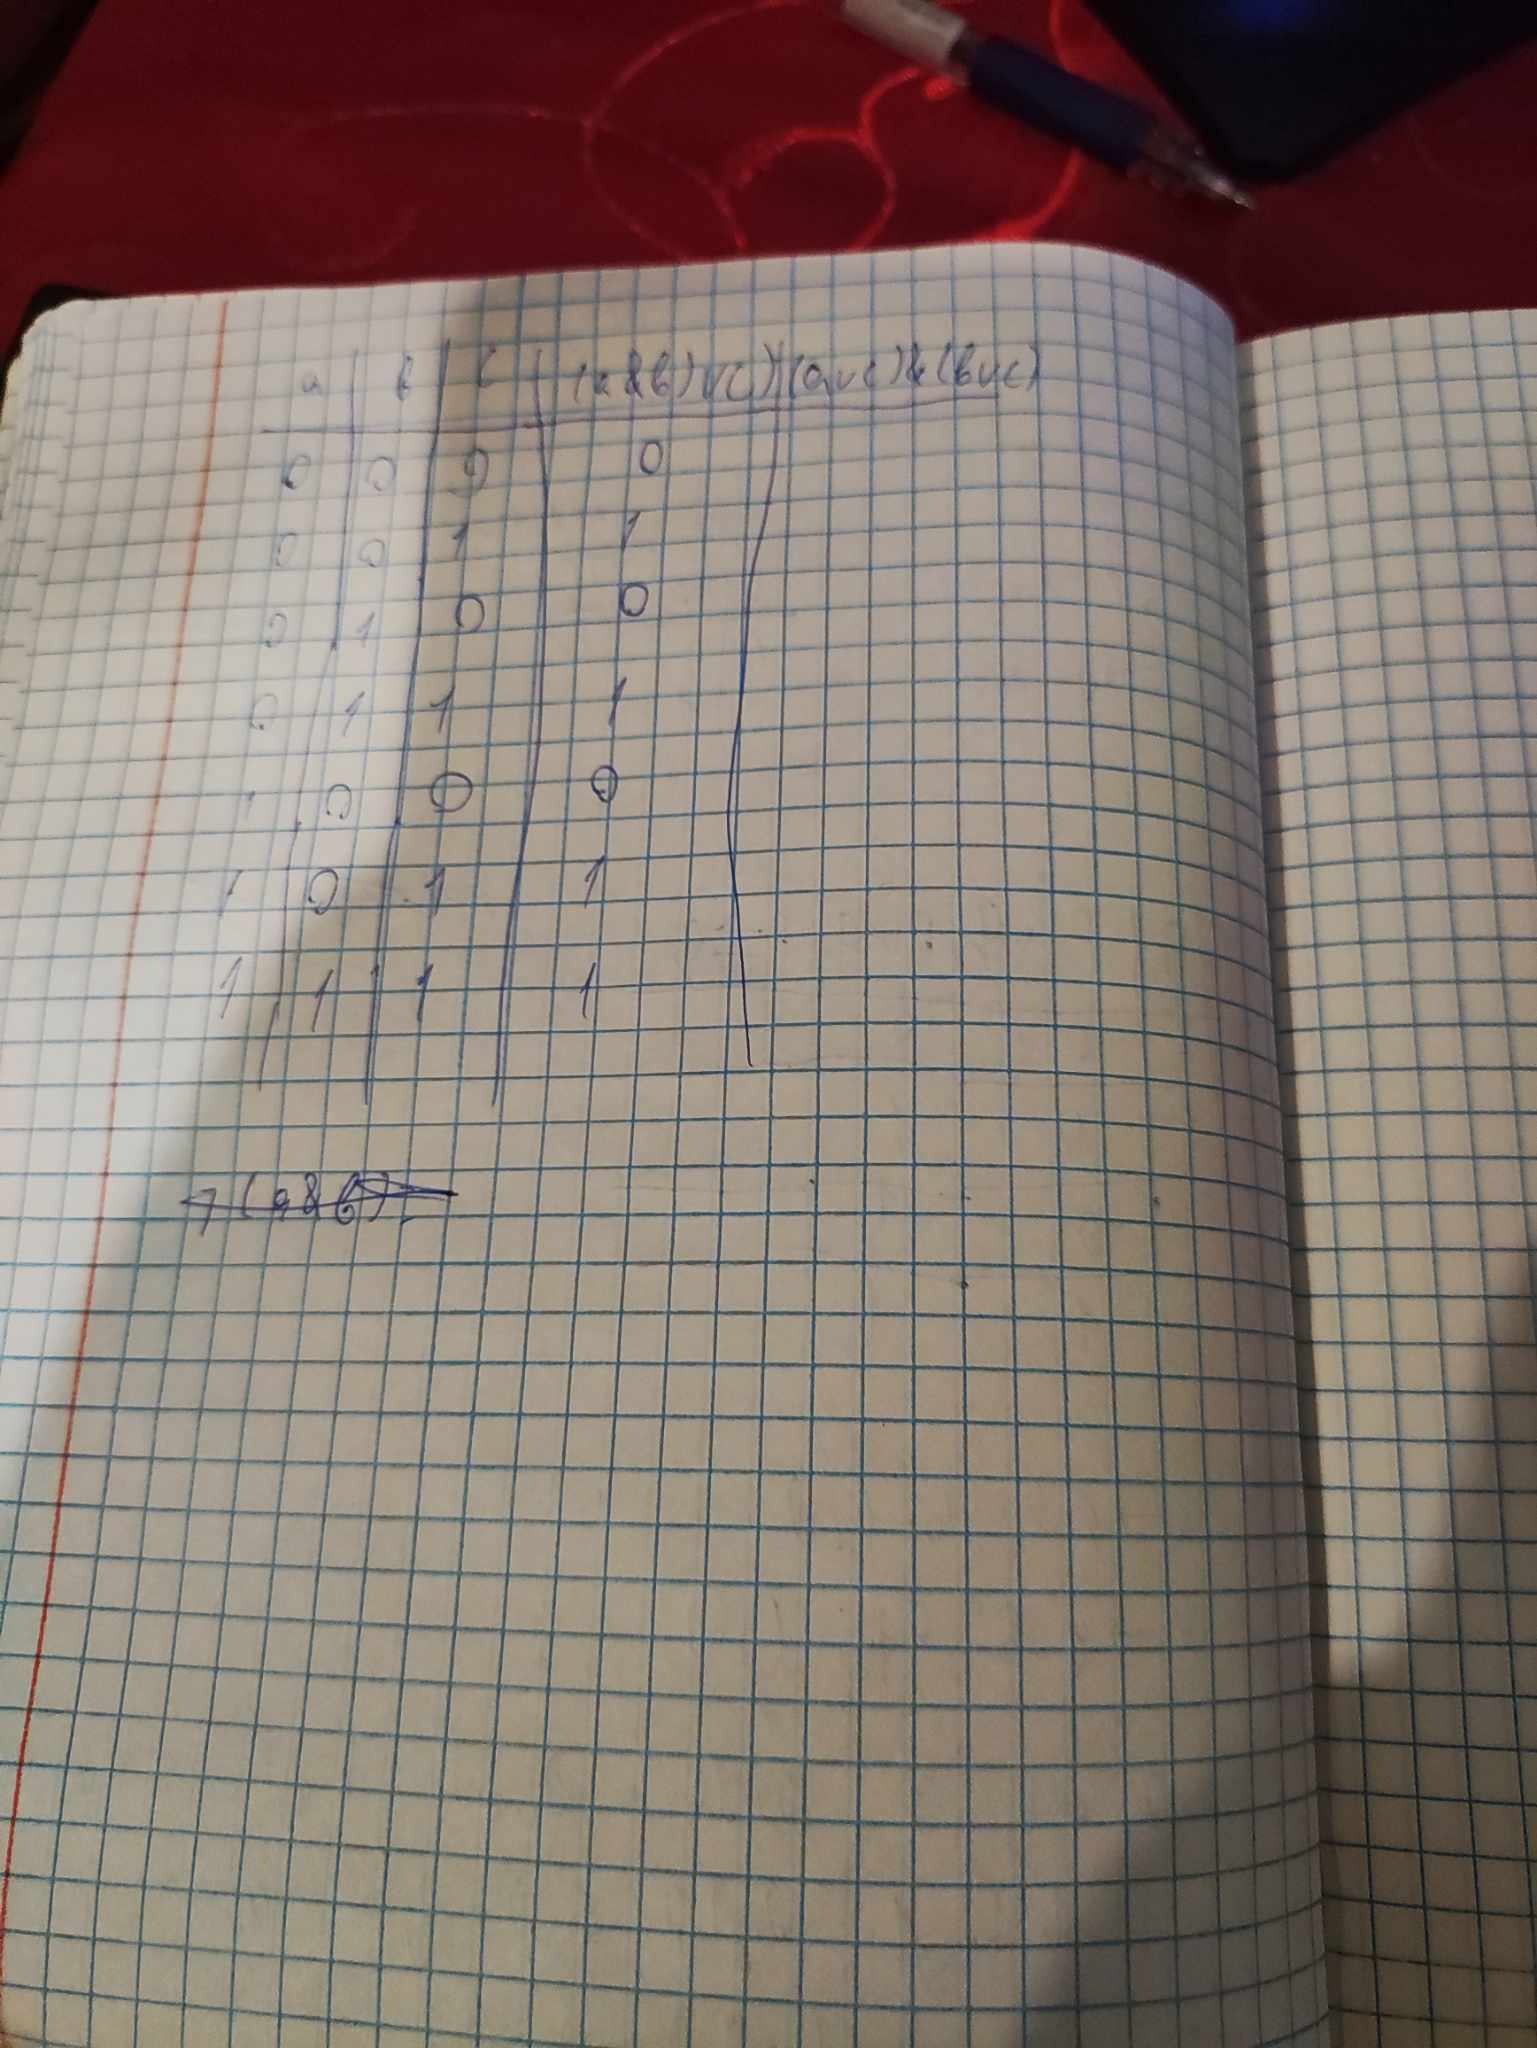 a b c (a&b)vc) (avc)&(bvc)
0 0 0 0
0 0 1 1
0 1 0 0
0 1 1 1
1 0 0 0
1 0 1 1
1 1 1 1
7(a&b)